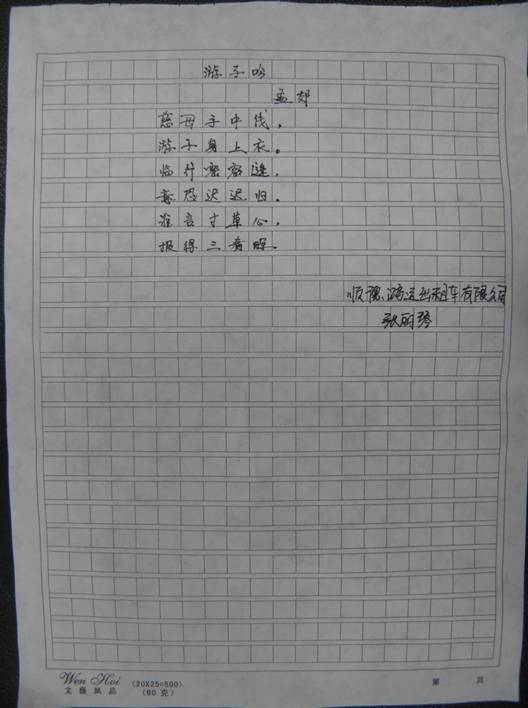 游子吟
孟郊
慈母手中线，
游子身上衣。
临行密密缝，
意恐迟迟归。
谁言寸草心，
报得三春晖.
顺 鸿运出租车有限公司
张丽琴
Wen Hui
文 纸品
(20X25=500)
(60克)
第 页